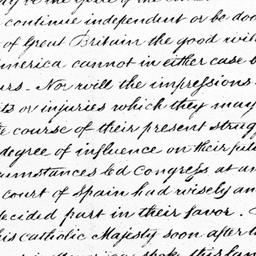 continue independent or be doo
of Great Britain the good wil
merica cannot in either case b
urs. Nor will the impressions
ts or injuries which they may
course of their present strug
degree of influence on their fut
cumstances led Congress at an
court of Spain had wisely an
decided part in their favor.
is catholic Majesty soon after t